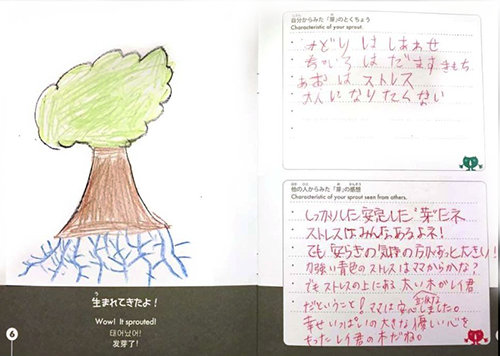 生まれてきたよ！
Wow! It sprouted!
태어났어!
发芽了!
6
自分からみた「芽」のとくちょう
Characteristic of your sprout.
みどり は しあわせ
ちゃいろ は だます きもち
あお は ストレス
大人 に なりたく ない
他の人からみた「芽」の感想
Characteristic of your sprout seen from others.
しっかりした 安定した "芽"だネ
ストレスはみんなあるよネ!
でも 安らぎの気持の方があっと大きい!
力強い青色のストレスはママからかな?
でもストレスの上にある 太い木がレイ君
だということ! ママは安心しました。
幸せいっぱいの大きな優しい心を
もったレイ君の木だね。